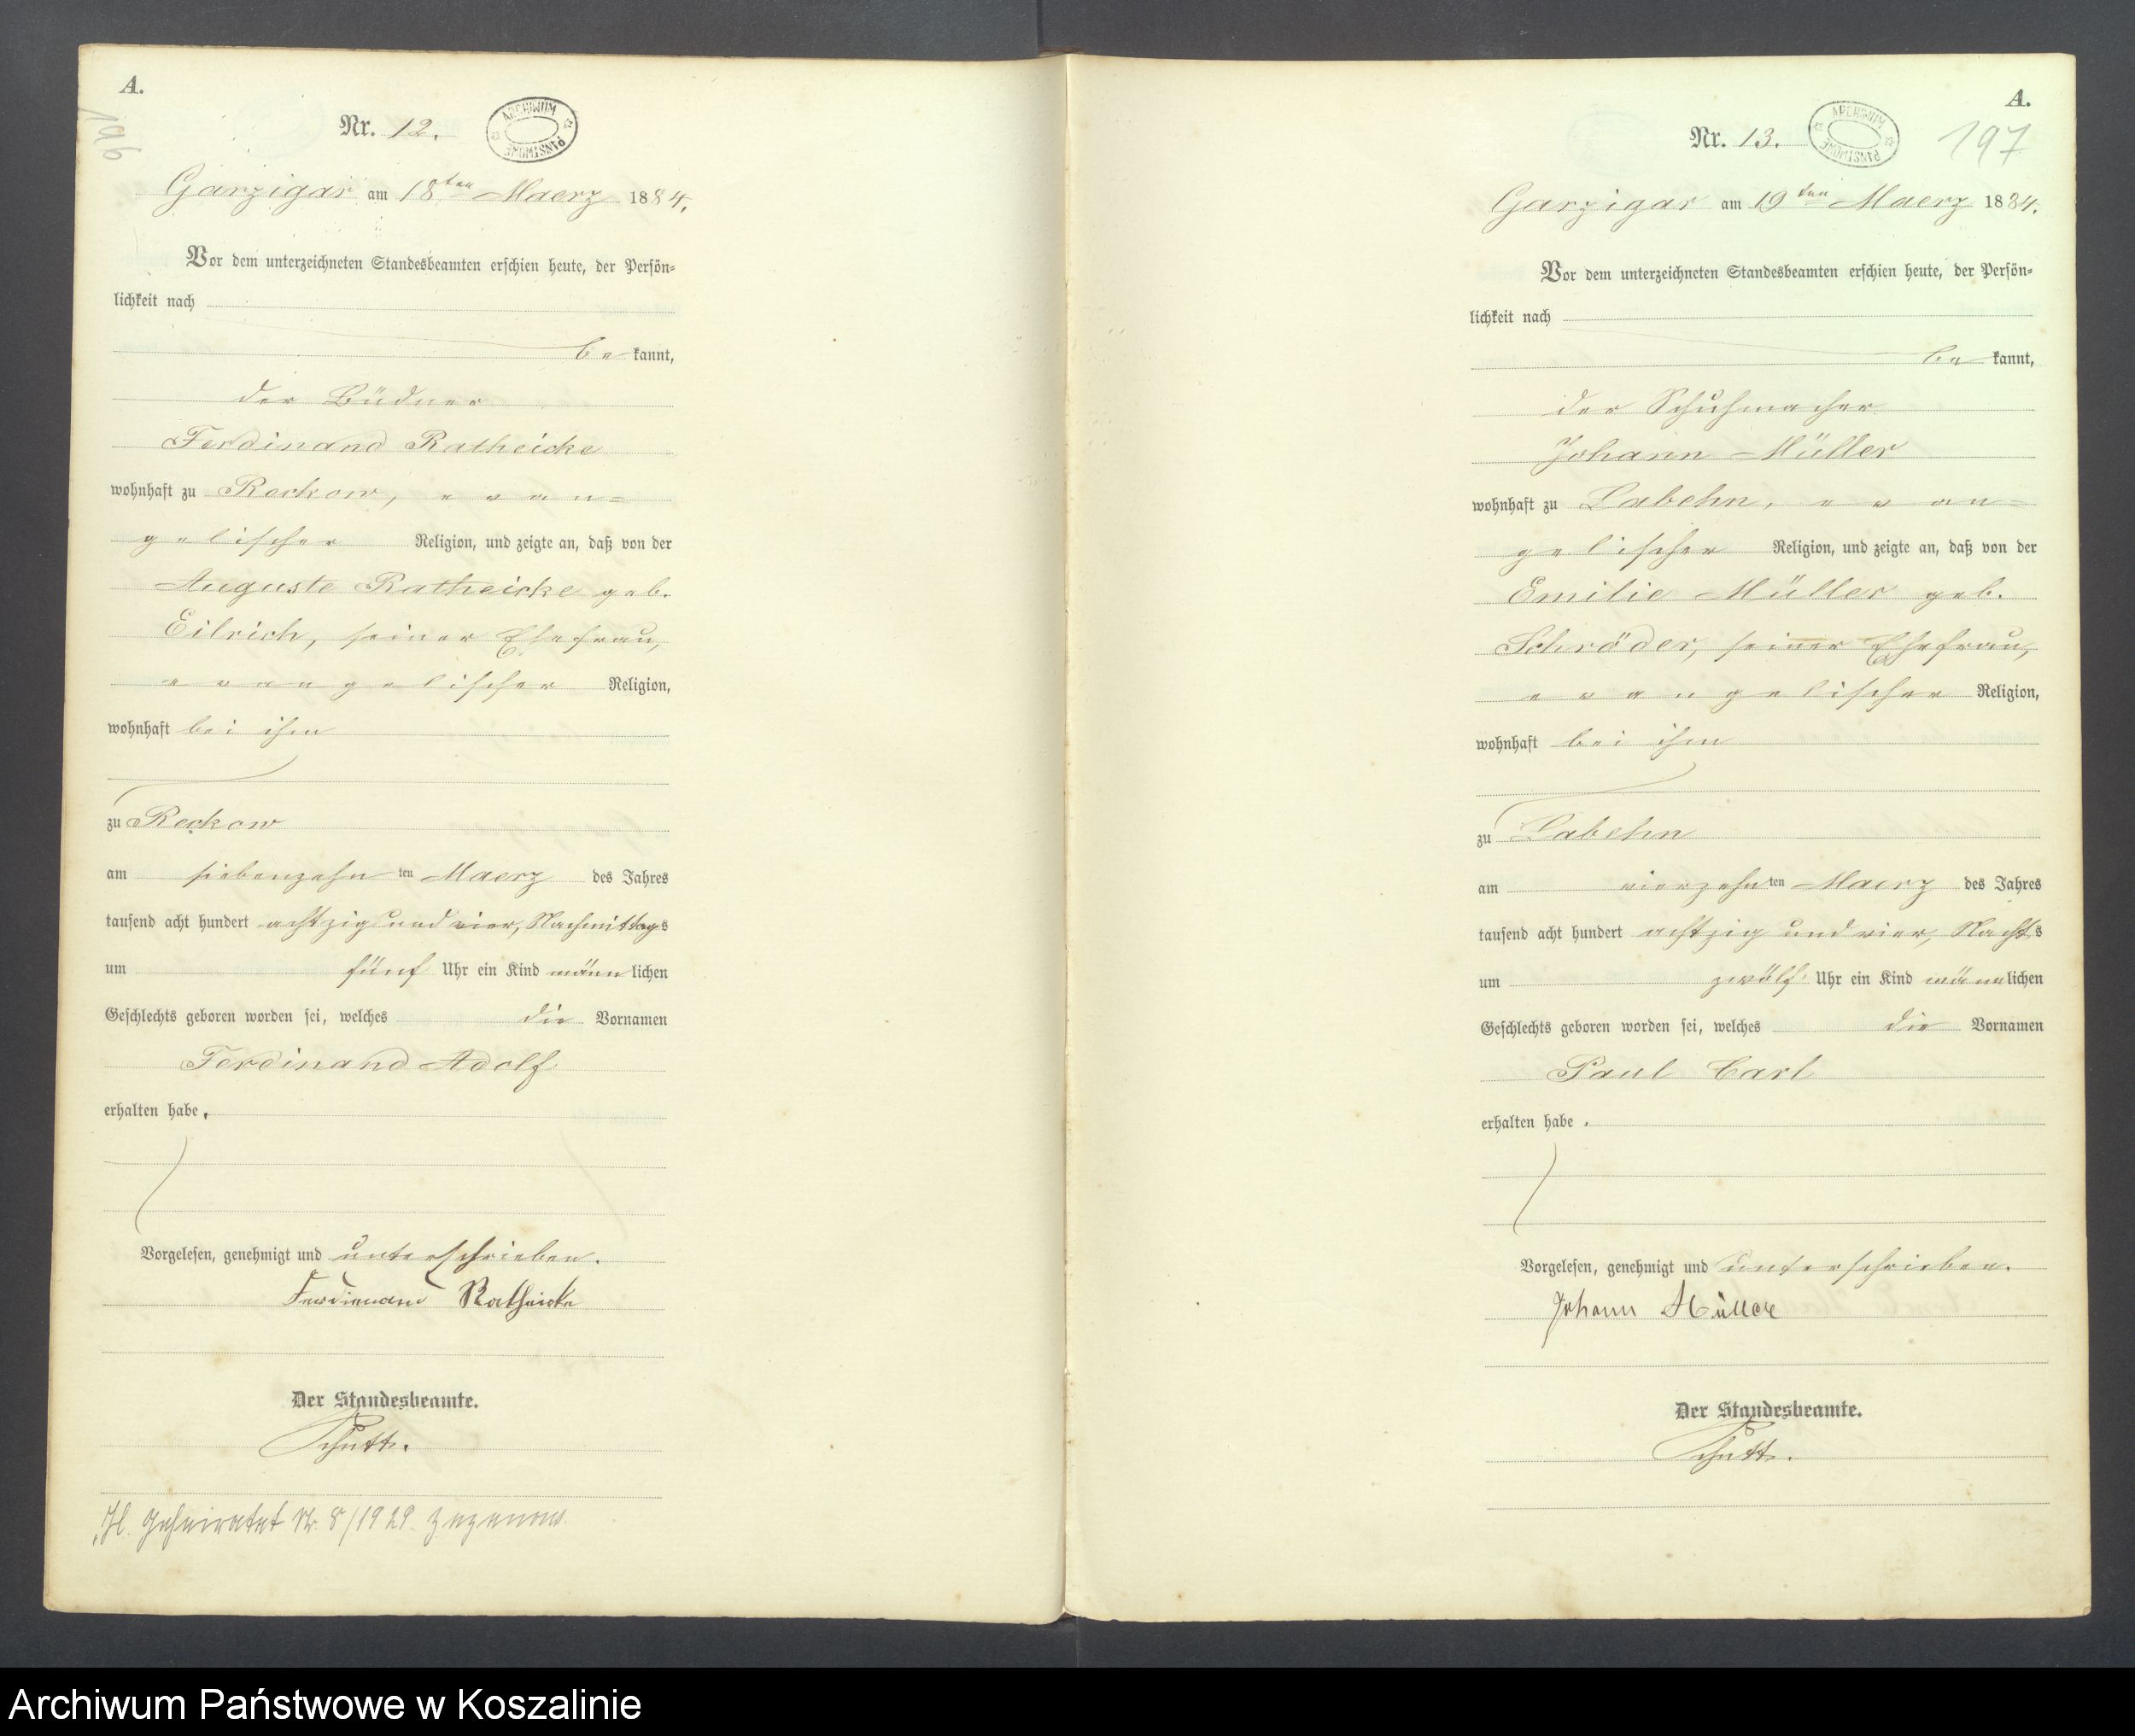 A.
196
Nr. 12.
ARCHIWUM PAŃSTWOWE
Garzigar am 18ten Maerz 1884.
Vor dem unterzeichneten Standesbeamten erschien heute, der Persön=
lichkeit nach
be kannt,
der Büdner
Ferdinand Ratheicke
wohnhaft zu Reckow, evan=
gelischer Religion, und zeigte an, daß von der
Auguste Ratheicke geb.
Eilrich, seiner Ehefrau,
evangelischer Religion,
wohnhaft bei ihm
zu Reckow
am siebenzehn ten Maerz des Jahres
tausend acht hundert achtzig und vier, Nachmittags
um fünf Uhr ein Kind männlichen
Geschlechts geboren worden sei, welches die Vornamen
Ferdinand Adolf
erhalten habe.
Vorgelesen, genehmigt und unterschrieben.
Ferdinand Ratheicke
Der Standesbeamte.
Schütt.
geheiratet Nr. 8/1929. Zezenow.
A.
197
Nr. 13.
ARCHIWUM PAŃSTWOWE
Garzigar am 19ten Maerz 1884.
Vor dem unterzeichneten Standesbeamten erschien heute, der Persön=
lichkeit nach
be kannt,
der Schuhmacher
Johann Müller
wohnhaft zu Labehn, evan=
gelischer Religion, und zeigte an, daß von der
Emilie Müller geb.
Schröder, seiner Ehefrau,
evangelischer Religion,
wohnhaft bei ihm
zu Labehn
am vierzehn ten Maerz des Jahres
tausend acht hundert achtzig und vier, Nachts
um zwölf Uhr ein Kind männlichen
Geschlechts geboren worden sei, welches die Vornamen
Paul Carl
erhalten habe.
Vorgelesen, genehmigt und unterschrieben.
Johann Müller
Der Standesbeamte.
Schütt.
Archiwum Państwowe w Koszalinie